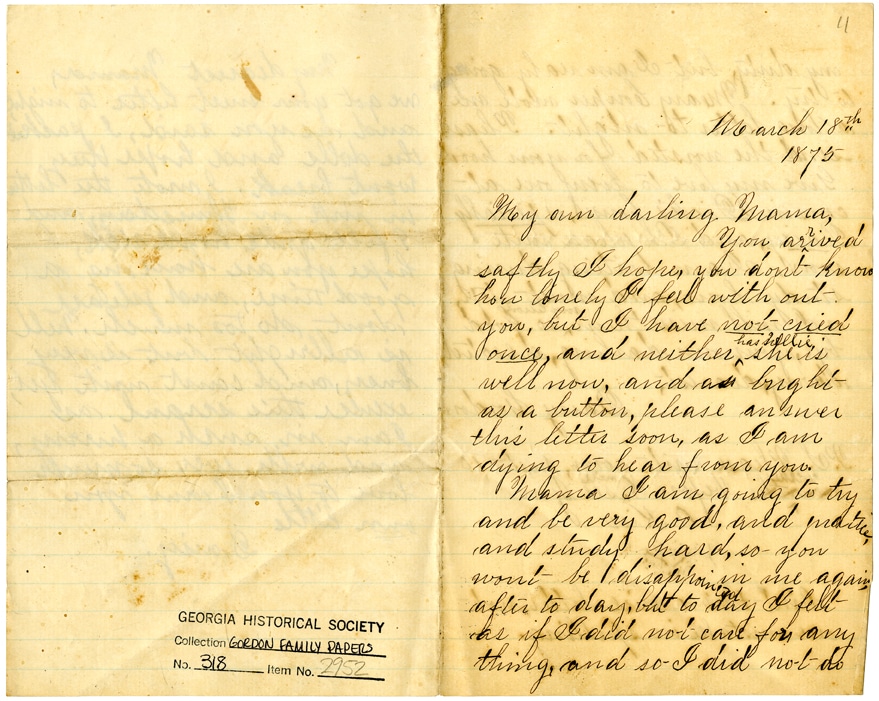 11
March 18th
1875
My own darling Mama,
You arrived
saftly I hope, you don't know
how lonely I feel with out
you, but I have not cried
once, and neither has Nellie, she is
well now, and as bright
as a button, please answer
this letter soon, as I am
dying to hear from you.
Mama I am going to try
and be very good, and practice,
and study hard, so you
wont be disappointed in me again,
after to day, but to day I felt
as if I did not care for any
thing, and so I did not do
GEORGIA HISTORICAL SOCIETY
Collection GORDON FAMILY PAPERS
No. 318 Item No. 2952